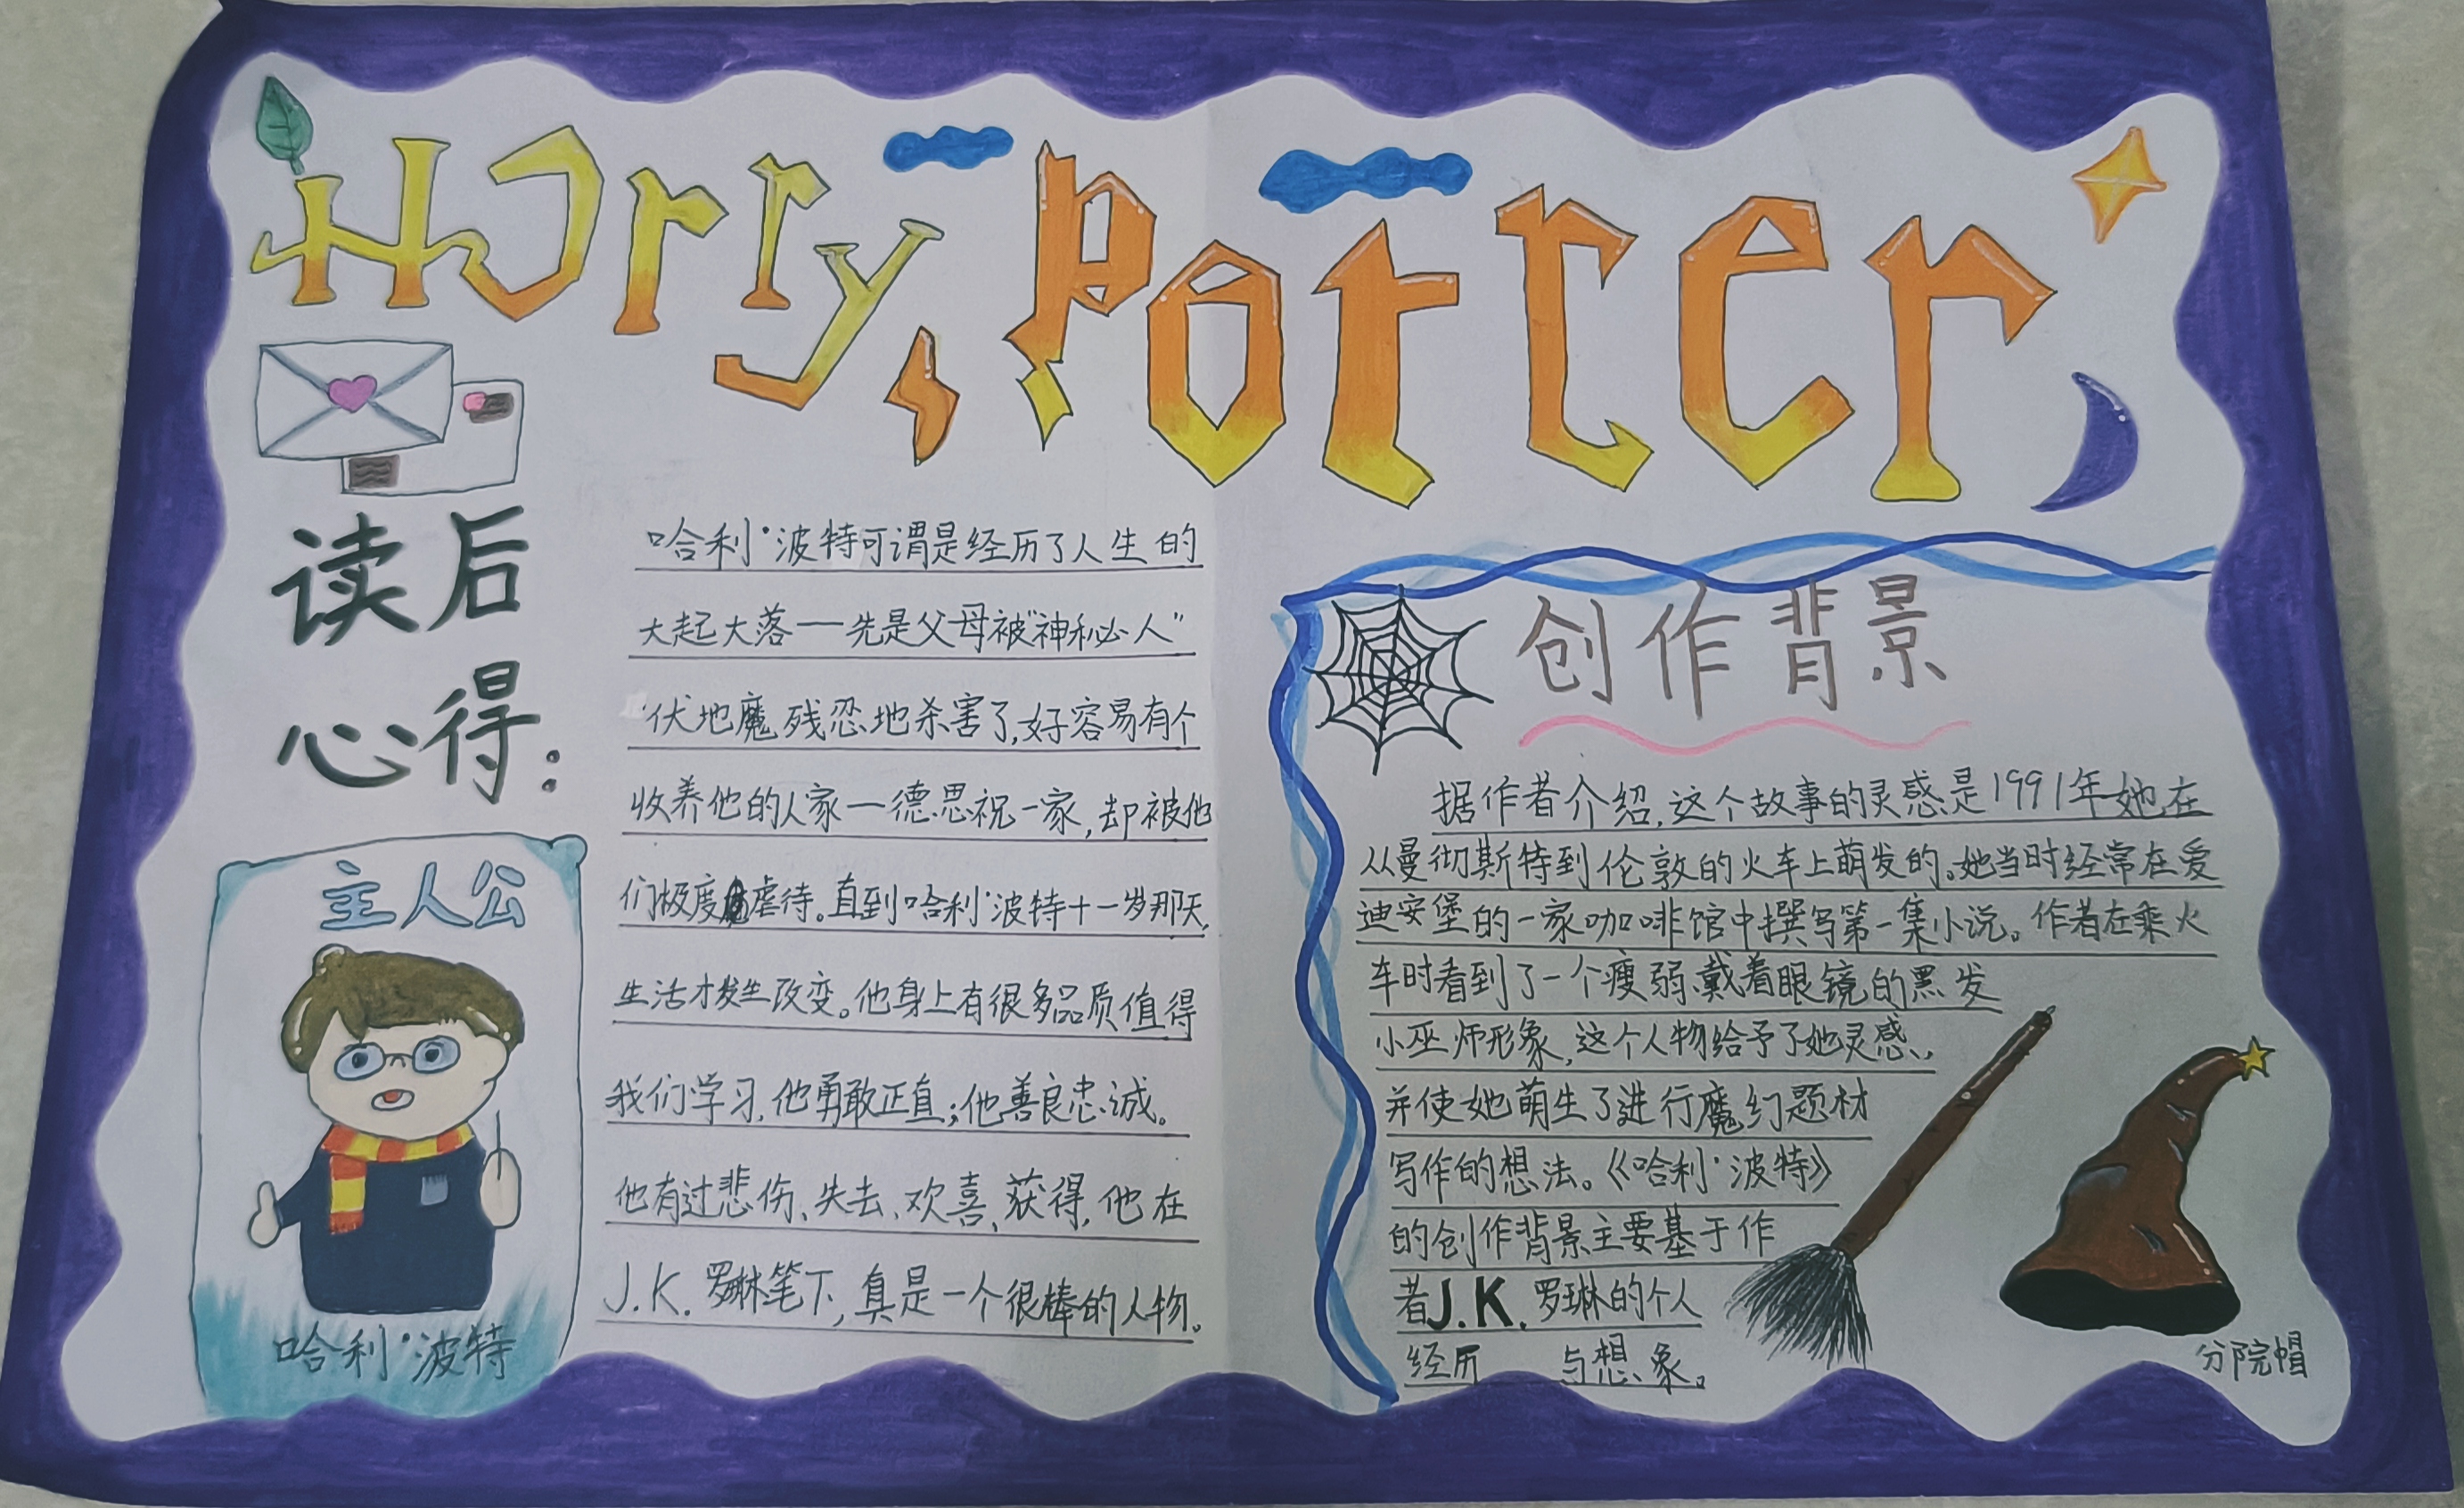 Harry Potter
读后
心得：
哈利·波特可谓是经历了人生的
大起大落——先是父母被"神秘人"
伏地魔残忍地杀害了,好容易有个
收养他的人家——德思祝一家,却被他
们极度虐待。直到哈利·波特十一岁那天,
生活才发生改变。他身上有很多品质值得
我们学习,他勇敢正直;他善良忠诚。
他有过悲伤、失去、欢喜、获得,他在
J.K.罗琳笔下,真是一个很棒的人物。
主人公
哈利·波特
创作背景
据作者介绍,这个故事的灵感是1991年她在
从曼彻斯特到伦敦的火车上萌发的。她当时经常在爱
迪安堡的一家咖啡馆中撰写第一集小说。作者在乘火
车时看到了一个瘦弱、戴着眼镜的黑发
小巫师形象,这个人物给予了她灵感、,
并使她萌生了进行魔幻题材
写作的想法。《哈利·波特》
的创作背景主要基于作
者J.K.罗琳的个人
经历 与想象。
分院帽